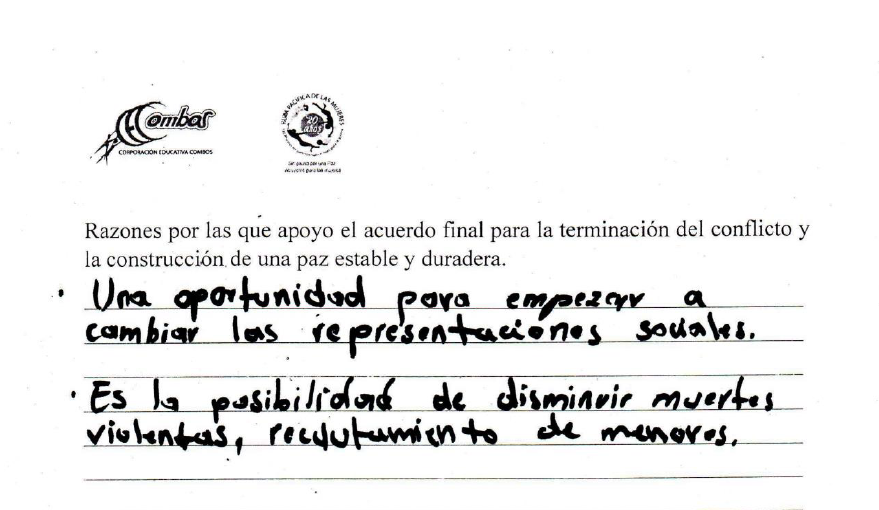 Combos
CORPORACIÓN EDUCATIVA COMBOS
RUTA PACÍFICA DE LAS MUJERES
20
años
Razones por las que apoyo el acuerdo final para la terminación del conflicto y
la construcción de una paz estable y duradera.
· Una oportunidad para empezar a
cambiar las representaciones sociales.
· Es la posibilidad de disminuir muertes
violentas, reclutamiento de menores.